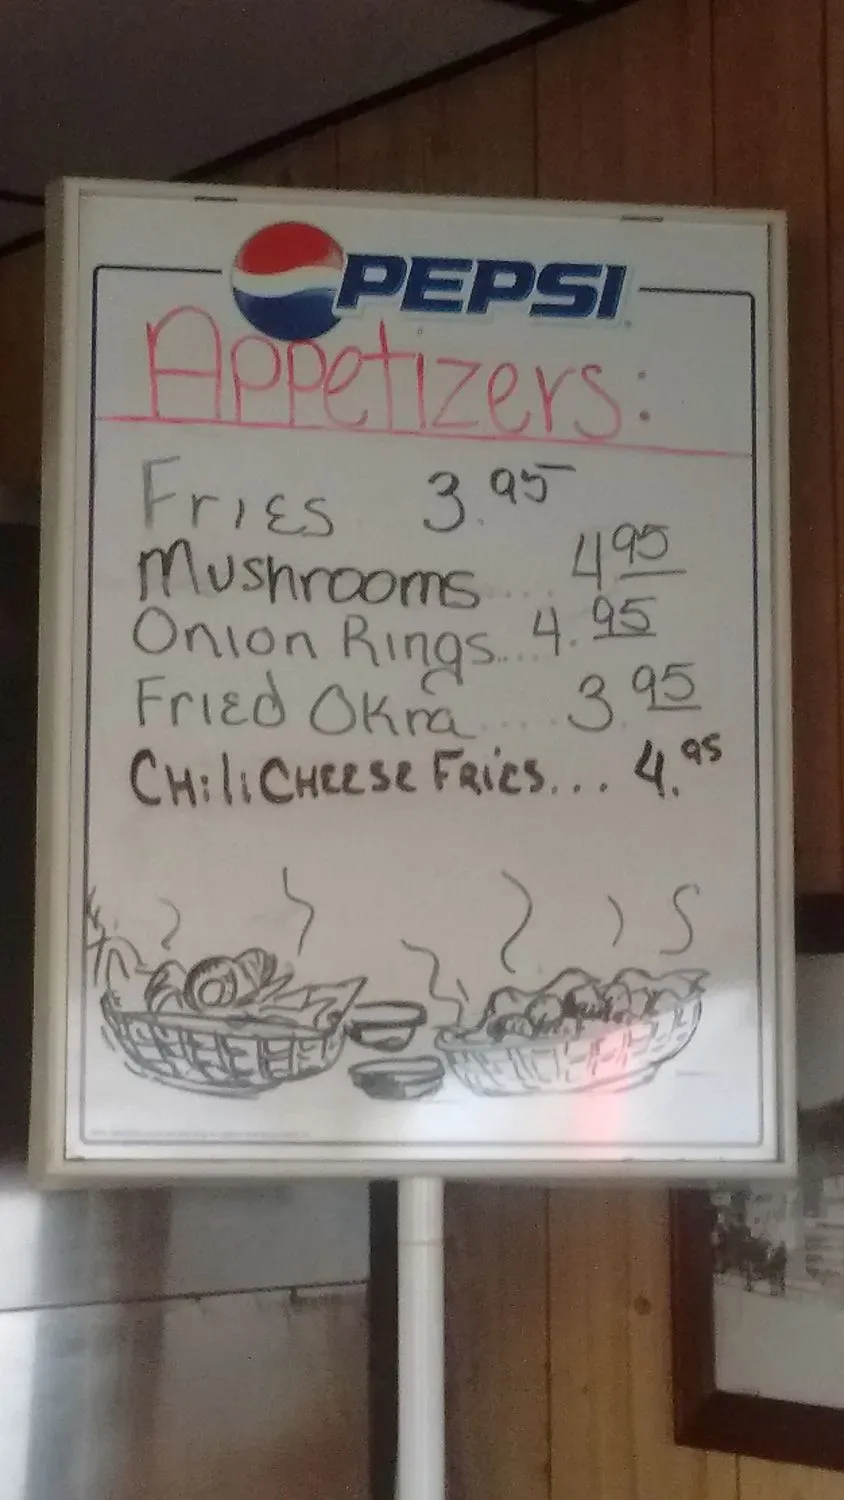 PEPSI
Appetizers:
Fries 3.95
Mushrooms.... 4 95
Onion Rings.... 4.95
Fried Okra .... 3.95
CHiliCHEESE FRiES... 4.95